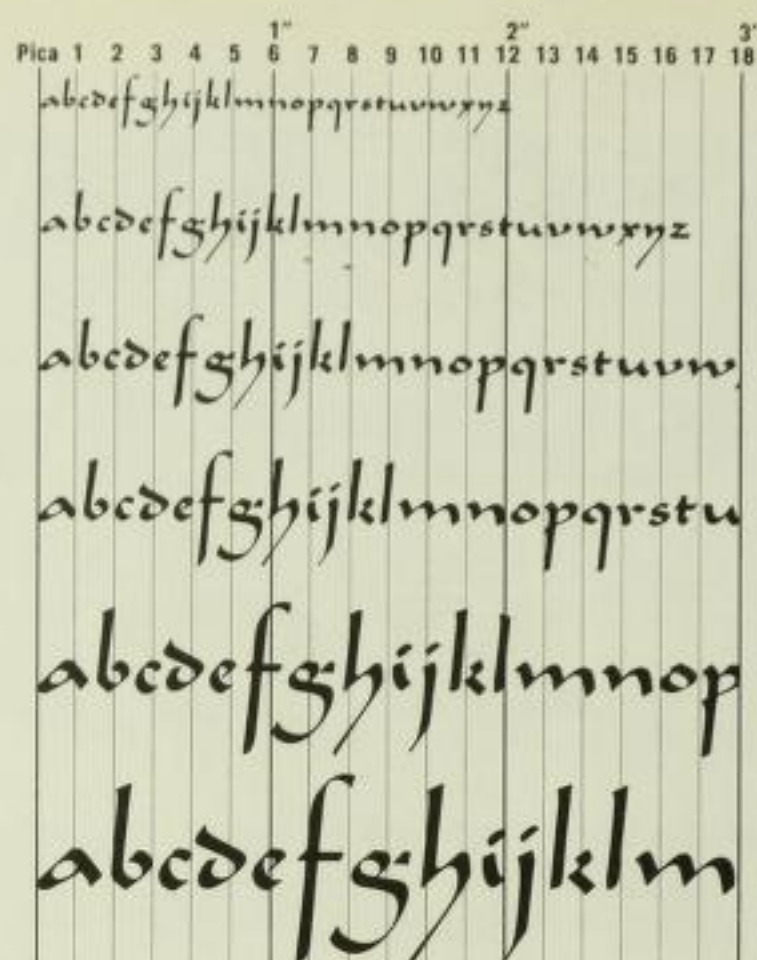 1" 2" 3"
Pica 1 2 3 4 5 6 7 8 9 10 11 12 13 14 15 16 17 18
abcdefghijklmnopqrstuvwxyz
abcdefghijklmnopqrstuvwxyz
abcdefghijklmnopqrstuvw
abcdefghijklmnopqrstu
abcdefghijklmnop
abcdefghijklm